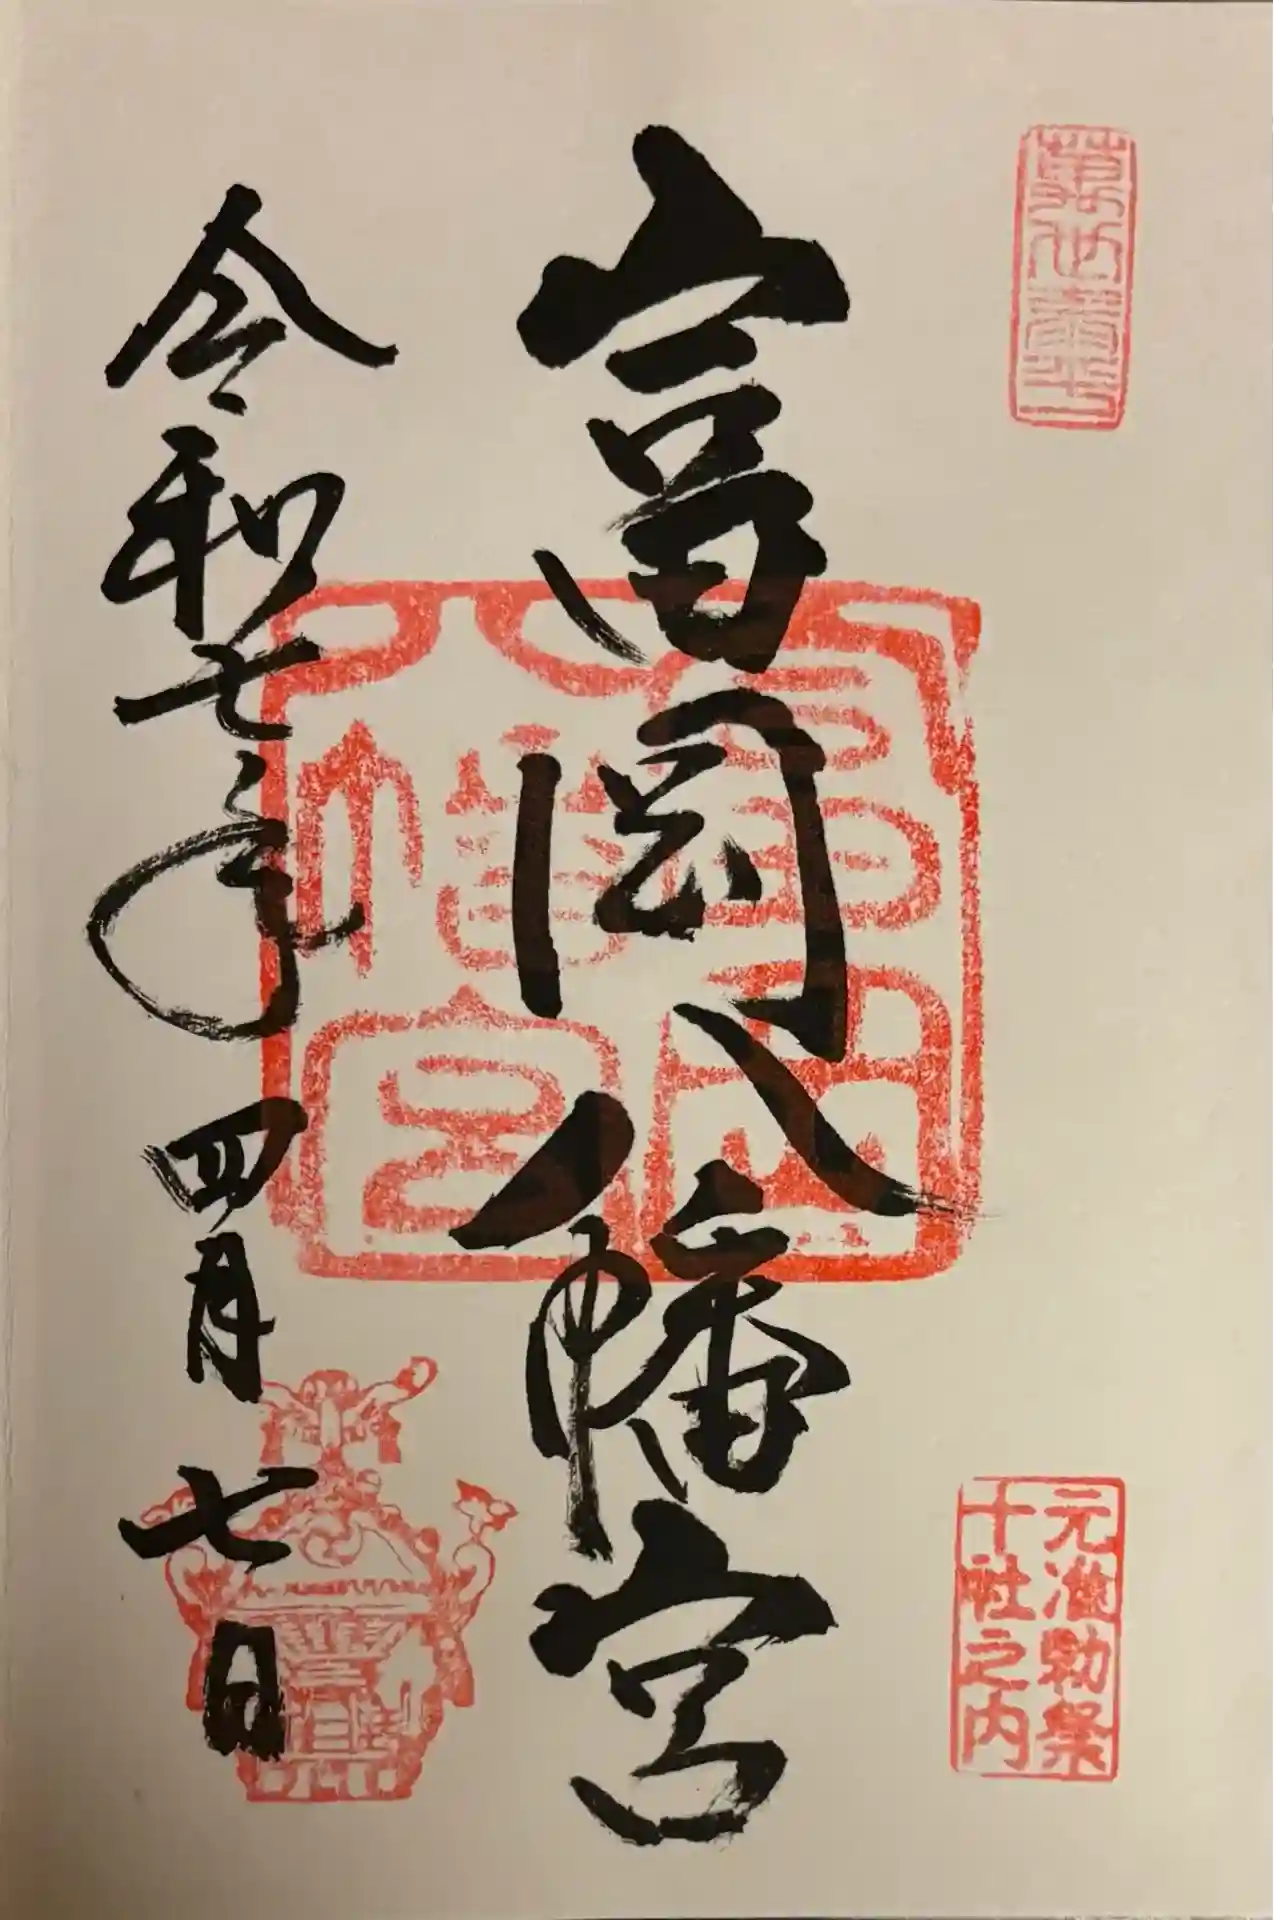 富岡八幡宮
元准勅祭
十社之内
富岡八幡宮
令和七年四月七日